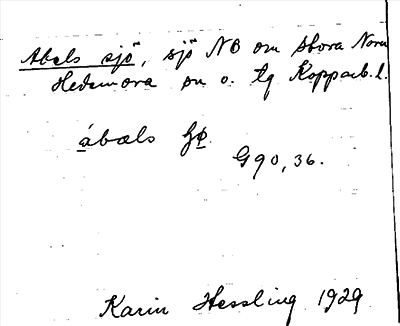 Abels sjö, sjö NO om Stora Norn
Hedemora sn o. tg Kopparb. l.
ábæls
G90, 36.
Karin Hessling 1929